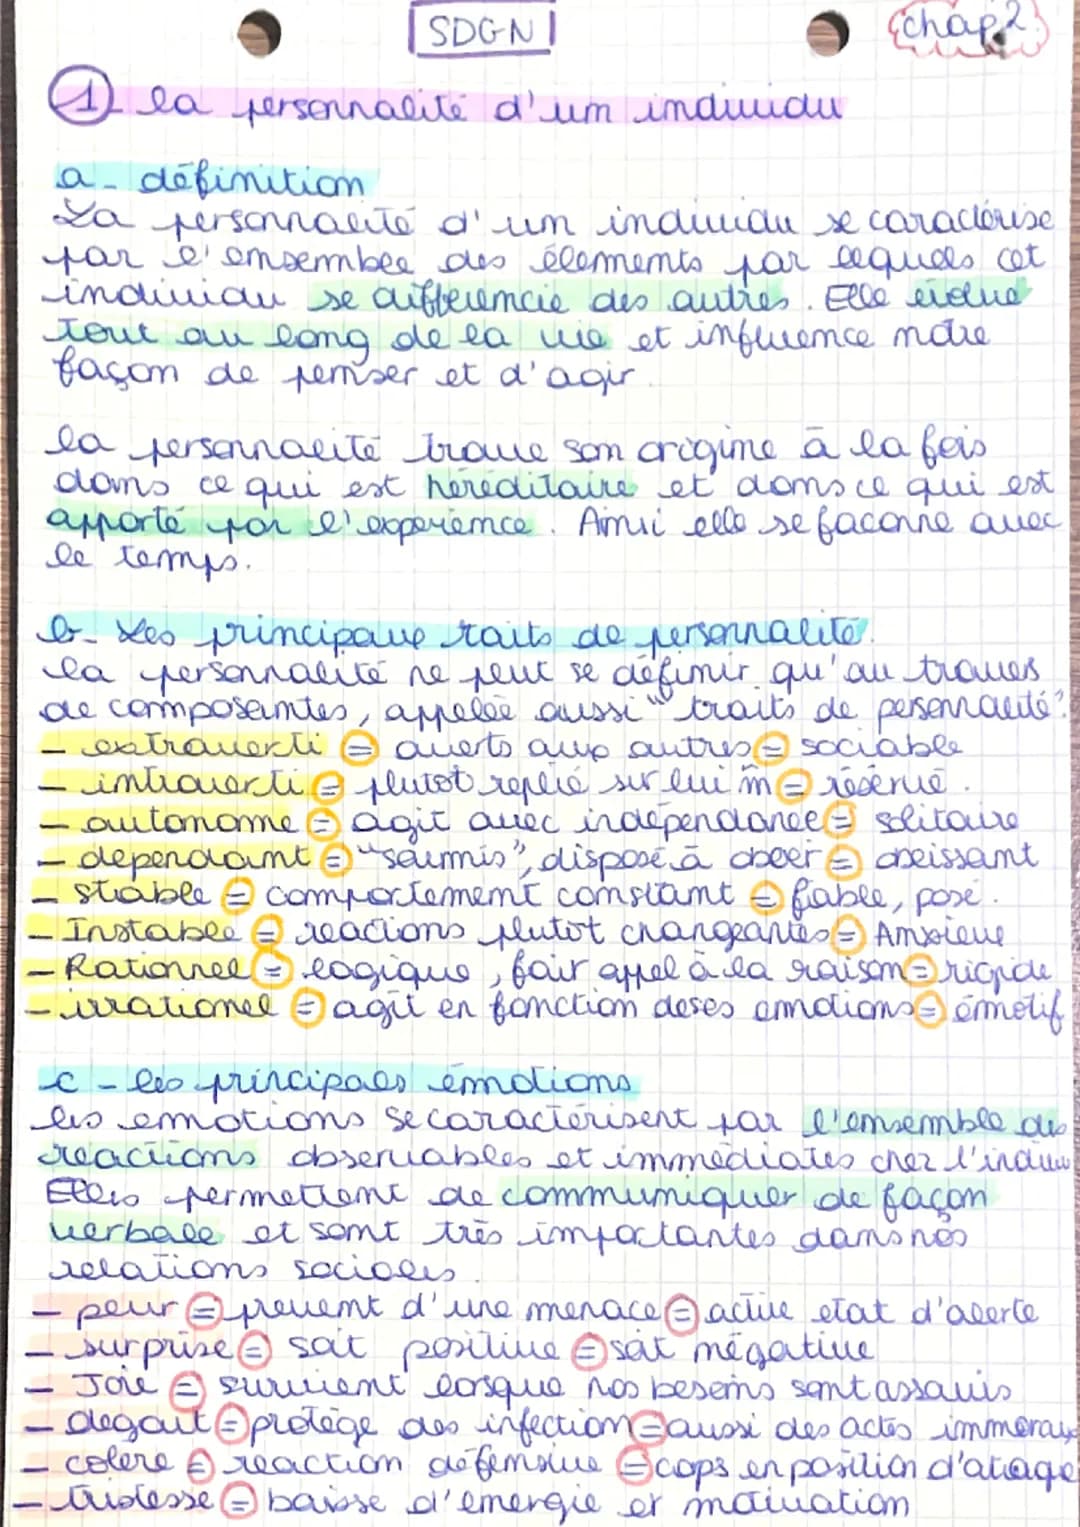 SDGN
chap 2
1 - la personnalité d'un individu
a - définition
La personnalité d'un individu se caractérise
par l'ensemble des élements par lequels cet
individu se differencie des autres. Elle évolue
tout au long de la vie et influence notre
façon de penser et d'agir.
la personnalité trouve son origine à la fois
dans ce qui est héréditaire et dans ce qui est
apporté par l'experience. Ainsi elle se faconne avec
le temps.
b - Les principaux traits de personnalité.
la personnalité ne peut se définir qu'au travers
de composantes, appelée aussi "traits de personnalité".
- extraverti = ouverts aux autres = sociable
- introverti = plutot replié sur lui m = réservé.
- autonome = agit avec indépendance = solitaire
- dependant = "soumis", disposé à obeer = obeissant
- stable = comportement constant = fiable, posé.
- Instable = reactions plutôt changeantes = Anxieux
- Rationnel = logique, fait appel à la raison = rigide
- irrationel = agit en fonction de ses emotions = émotif
c - les principales émotions
les emotions se caractérisent par l'ensemble des
reactions observables et immédiates chez l'indivi
Elles permettent de communiquer de façon
verbale et sont très importantes dans nos
relations sociales.
- peur = previent d'une menace = active etat d'alerte
- surprise = soit positive = soit négative
- Joie = survient lorsque nos besoins sont assouvis
- degout = protège des infection = aussi des actes immoraux
- colere = reaction défensive = corps en position d'attaque
- tristesse = baisse d'energie et motivation